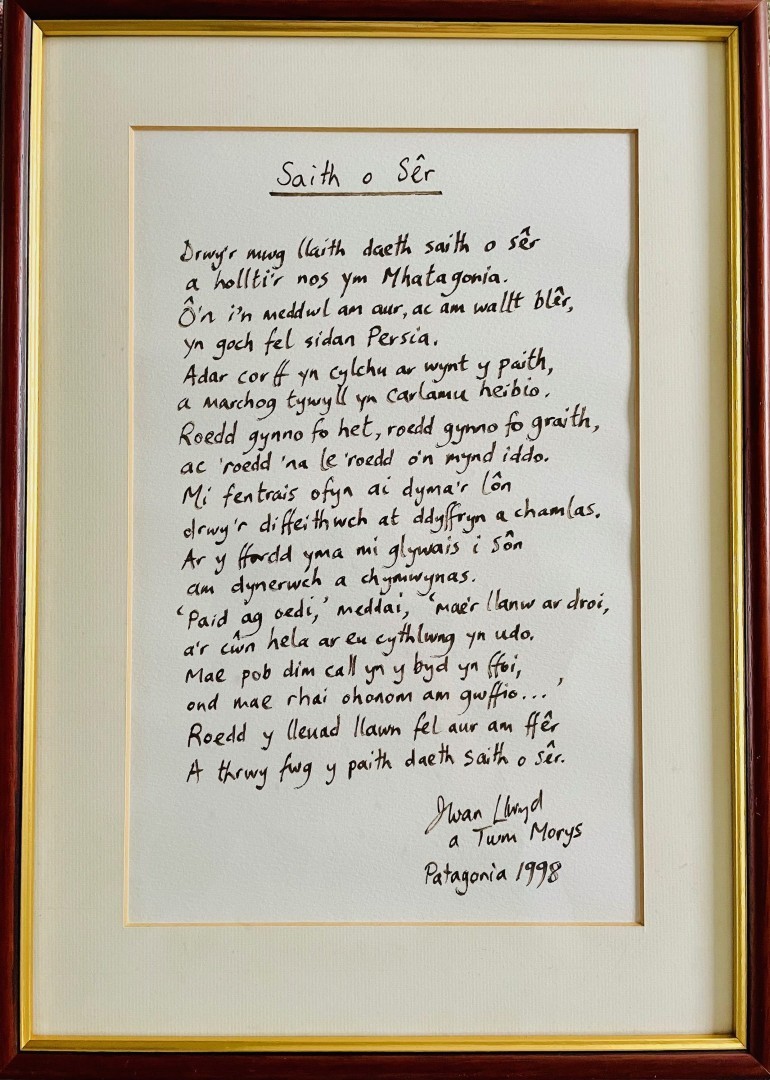 Saith o Sêr
Drwy'r mwg llaith daeth saith o sêr
a hollti'r nos ym Mhatagonia.
Ô'n i'n meddwl am aur, ac am wallt blêr,
yn goch fel sidan Persia.
Adar corff yn cylchu ar wynt y paith,
a marchog tywyll yn carlamu heibio.
Roedd gynno fo het, roedd gynno fo graith,
ac 'roedd 'na le 'roedd o'n mynd iddo.
Mi fentrais ofyn ai dyma'r lôn
drwy'r diffeithwch at ddyffryn a chamlas.
Ar y ffordd yma mi glywais i sôn
am dynerwch a chymwynas.
'Paid ag oedi,' meddai, 'mae'r llanw ar droi,
a'r cŵn hela ar eu cythlwng yn udo.
Mae pob dim call yn y byd yn ffoi,
ond mae rhai ohonom am gwffio...'
Roedd y lleuad llawn fel aur am ffêr
A thrwy fwg y paith daeth saith o sêr.
Iwan Llwyd
a Twm Morys
Patagonia 1998